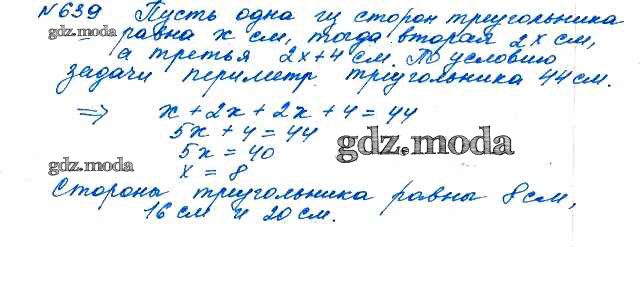 №639 Пусть одна из сторон треугольника
gdz.moda равна x см, тогда вторая 2x см,
а третья 2x+4 см. По условию
задачи периметр треугольника 44 см.
⇒ x + 2x + 2x + 4 = 44
5x + 4 = 44
gdz.moda
5x = 40
gdz.moda
x = 8
Стороны треугольника равны 8 см,
16 см и 20 см.